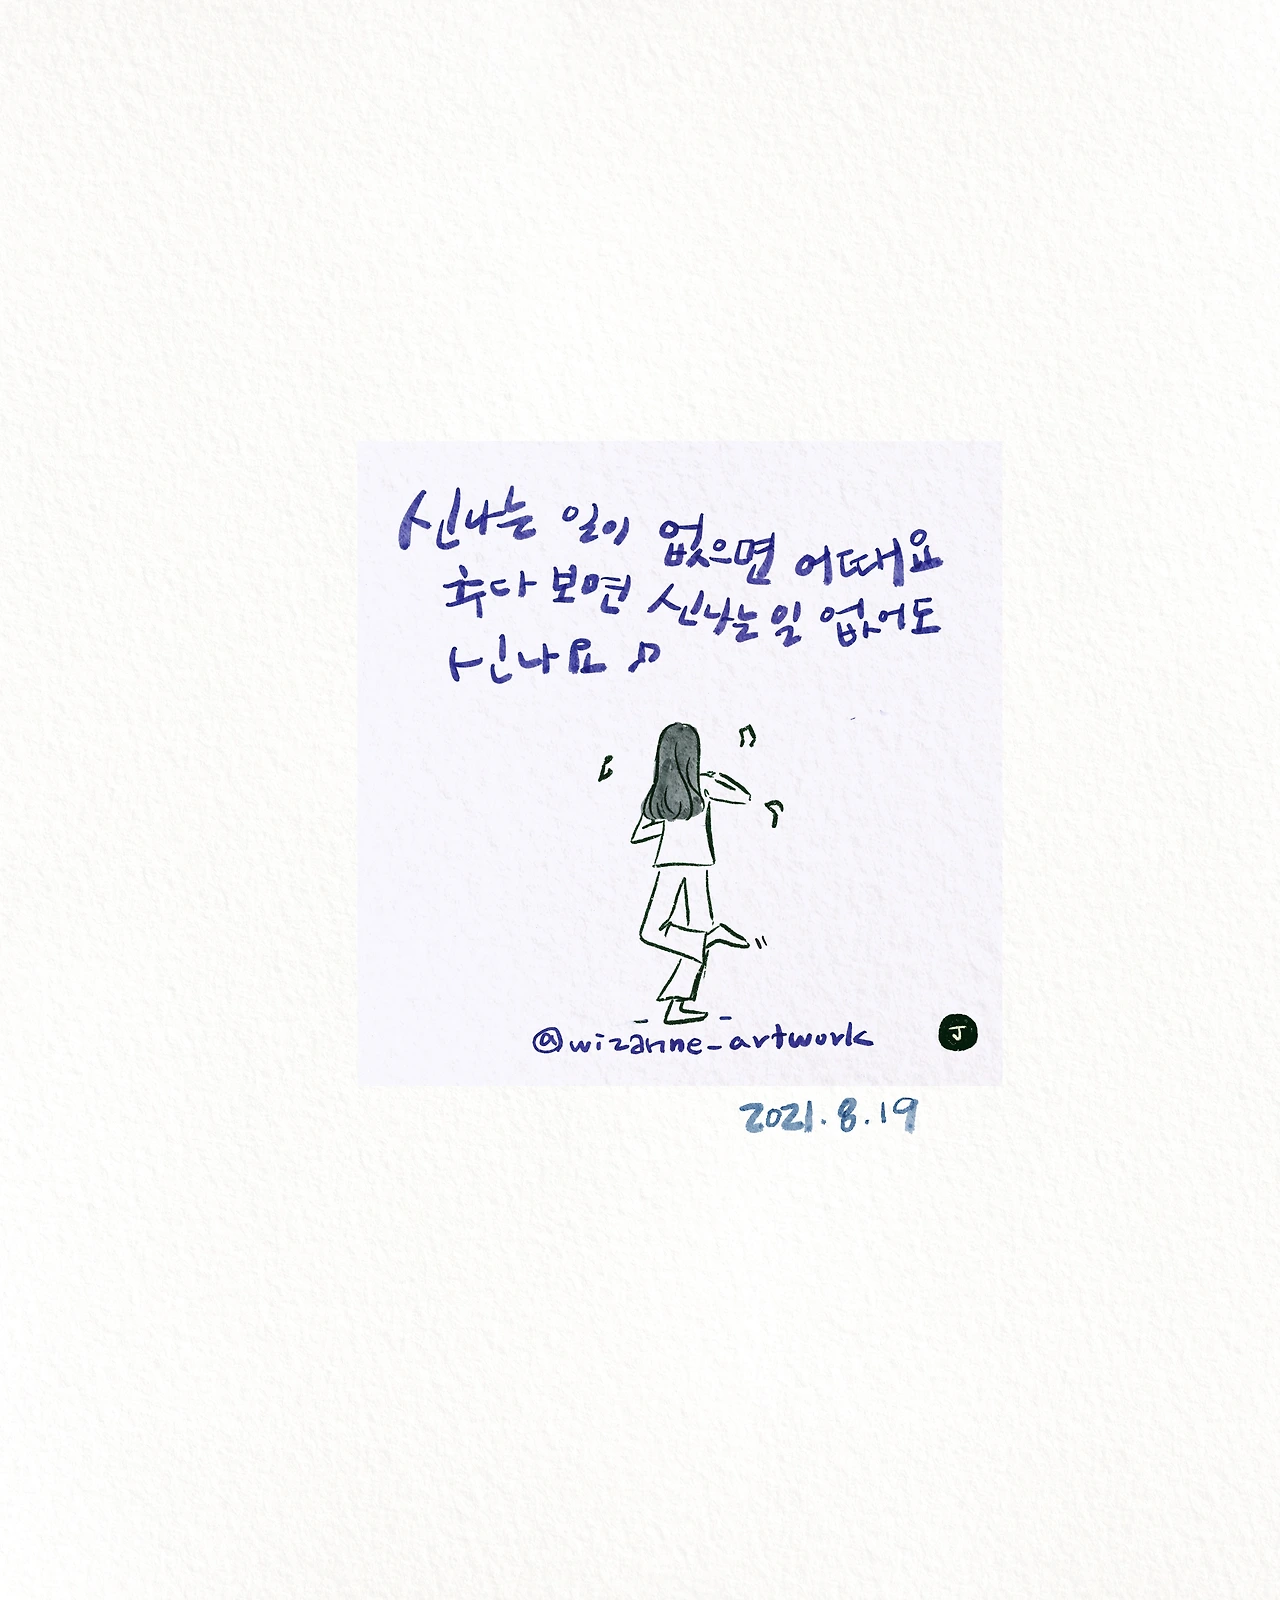 신나는 일이 없으면 어때요
추다 보면 신나는 일 없어도
신나요 ♫
@wizanne_artwork
J
2021.8.19